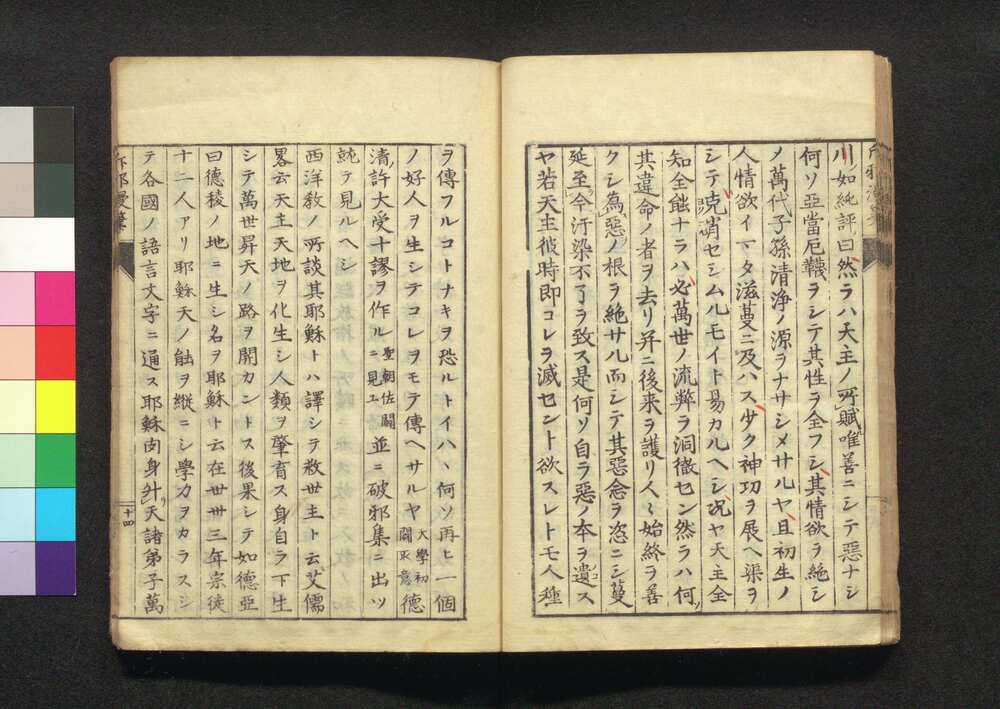 川如純評曰然ラハ天主ノ所賦唯善ニシテ惡ナシ
何ソ亞當厄襪ヲシテ其性ヲ全フシ其情欲ヲ絶シ
ノ萬代子孫清浄ノ源ヲナサシメサルヤ且初生ノ
人情欲イマタ滋蔓ニ及ハス少ク神功ヲ展ヘ渠ヲ
シテ克肖セシムルモイト易カルヘシ况ヤ天主全
知全能ナラハ必萬世ノ流弊ヲ洞徹セン然ラハ何
其違命ノ者ヲ去リ并ニ後来ヲ護リ人〻始終ヲ善
クシ為惡ノ根ヲ絶サル而シテ其惡念ヲ恣ニシ蔓
延至今汙染不了ヲ致ス是何ソ自ラ惡ノ本ヲ遺ス
ヤ若天主彼時即コレヲ滅セント欲スレトモ人種
ヲ傳フルコトナキヲ恐ルトイハヽ何ソ再ヒ一個
ノ好人ヲ生シテコレヲモテ傳ヘサルヤ 大學初闢邪意 德
清許大受十謬ヲ作ル 聖朝佐闢ニ見ユ 並ニ破邪集ニ出ツ
就テ見ルヘシ
西洋敎ノ所談其耶穌トハ譯シテ救世主ト云艾儒
畧云天主天地ヲ化生シ人類ヲ肇育ス身自ラ下生
シテ萬世昇天ノ路ヲ開カントス後果シテ如德亞
曰德稜ノ地ニ生シ名ヲ耶穌ト云在世卅三年宗徒
十二人アリ耶穌天ノ能ヲ縦ニシ學力ヲカラスシ
テ各國ノ語言文字ニ通ス耶穌肉身升天諸弟子萬
十四